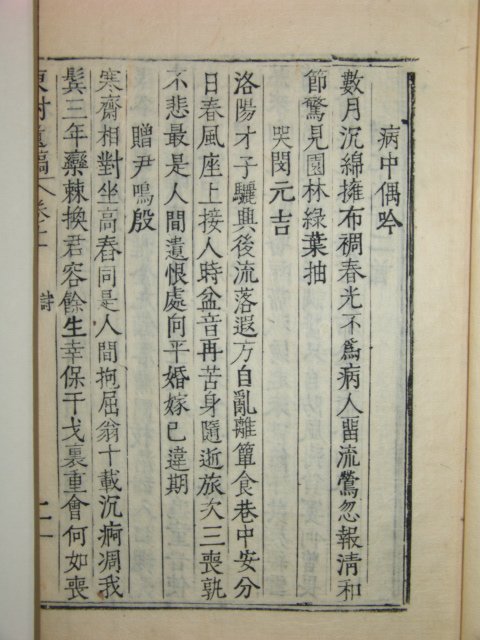 病中偶吟
數月沉綿擁布裯春光不爲病人畱流鶯忽報清和
節驚見園林綠葉抽
哭閔元吉
洛陽才子驪興後流落遐方自亂離簞食巷中安分
日春風座上接人時盆音再苦身隨逝旅次三喪孰
不悲最是人間遺恨處向平婚嫁已違期
贈尹鳴殷
寒齋相對坐高舂同是人間抱屈翁十載沉痾凋我
鬂三年欒棘換君容餘生幸保干戈裏重會何如喪
村遺稿 卷之一 詩